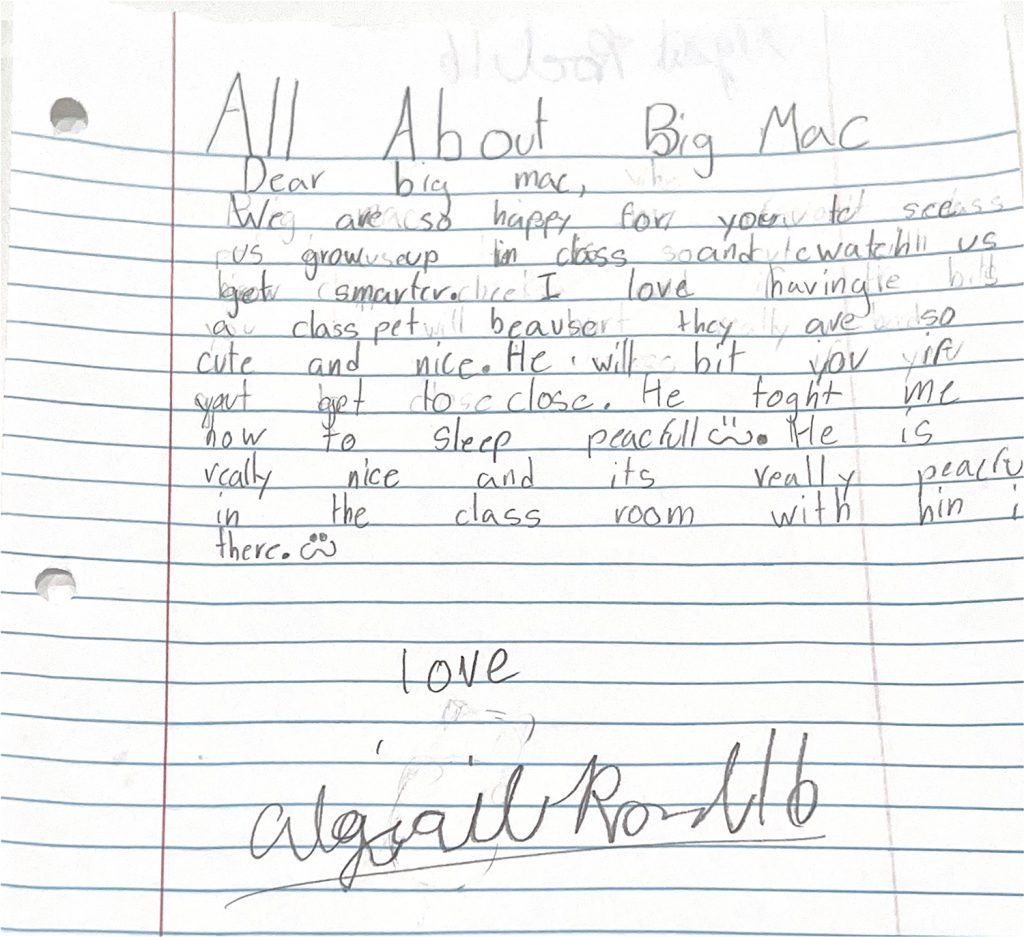 All About Big Mac
Dear big mac,
We are so happy for you to see
us grow up in class and watch us
get smarter. I love having
a class pet beauser they are so
cute and nice. He will bit you if
you get to close. He toght me
how to sleep peacfull. He is
really nice and its really peacfu
in the class room with hin i
there.
love